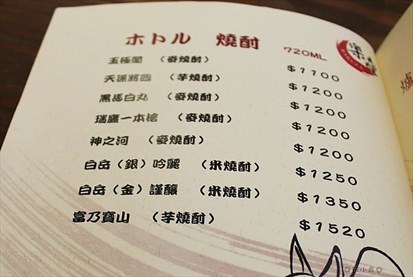 ホトル 燒酎 720ML
五極閣 （麥燒酎） $1100
天運將酉 （芋燒酎） $1200
黑馬白丸 （麥燒酎） $1200
瑞鷹一本槍 （麥燒酎） $1200
神之河 （麥燒酎） $1200
白岳（銀）吟麗 （米燒酎） $1250
白岳（金）謹釀 （米燒酎） $1350
富乃寶山 （芋燒酎） $1520